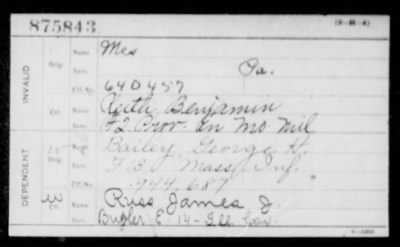 875843
(3-M-4)
INVALID
DEPENDENT
Orig.
Name Mes
Serv. Pa.
Ctf. No. 640457
Ctf.
Name Keith, Benjamin
Serv. F2 Prov. En Mo Mil
W Orig.
Name Bailey, George H.
Serv. F 13 Mass Inf.
Ctf. No. 944,687
W Ctf.
Name Russ James J.
Serv. Bugler E. 14-Ill Cav.